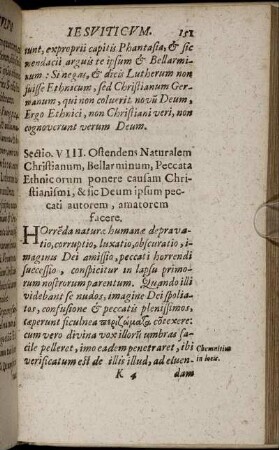 IESVITICVM. 151
runt, exproprii capitis Phantasia, & sic
mendacii arguis te ipsum & Bellarmi-
num: Si negas, & dicis Lutherum non
fuisse Ethnicum, sed Christianum Ger-
manum, qui non coluerit novū Deum,
Ergo Ethnici, non Christiani veri, non
cognoverunt verum Deum.
Sectio. VIII. Ostendens Naturalem
Christianum, Bellarminum, Peccata
Ethnicorum ponere causam Chri-
stianismi, & sic Deum ipsum pec-
cati autorem, amatorem
facere.
HOrrēda naturæ humanæ deprava-
tio, corruptio, luxatio, obscuratio, i-
maginis Dei amissio, peccati horrendi
successio, conspicitur in lapsu primo-
rum nostrorum parentum. Quando illi
videbant se nudos, imagine Dei spolia-
tos, confusione & peccatis plenissimos,
cœperunt ficulnea περιζώματα cōtexere:
cum vero divina vox illorū umbras fa-
cile pelleret, imo eadem penetraret, ibi
verificatum est de illis illud, ad eluen-
Chemnitius
in locis.
K 4 dam